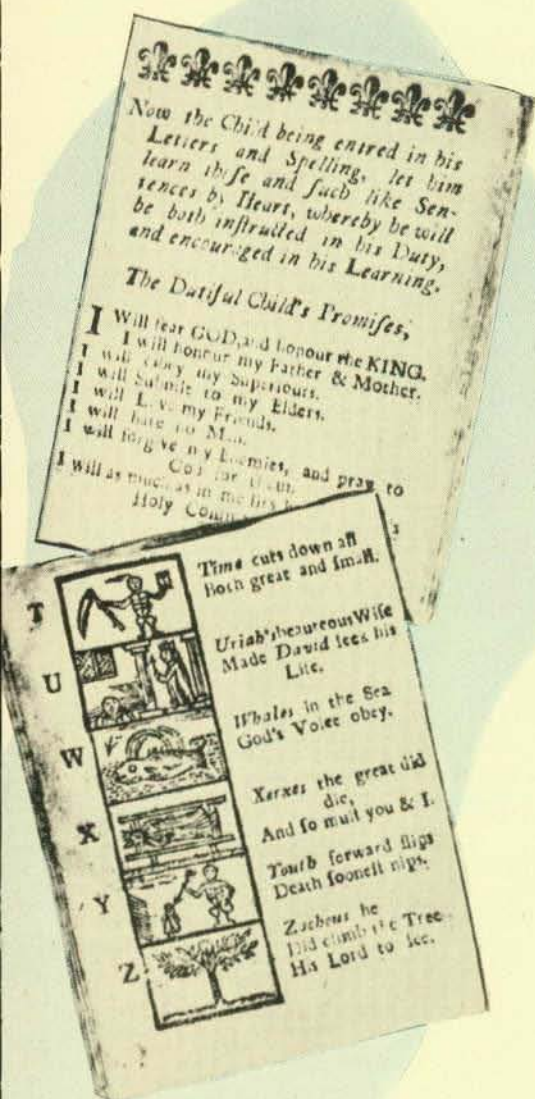 Now the Child being entred in his
Letters and Spelling, let him
learn theſe and ſuch like Sen-
tences by Heart, whereby he will
be both inſtructed in his Duty,
and encouraged in his Learning.
The Dutiful Child's Promiſes,
I Will fear GOD, and honour the KING.
I will honour my Father & Mother.
I will Obey my Superiours.
I will Submit to my Elders.
I will Love my Friends.
I will hate no Man.
I will forgive my Enemies, and pray to
God for them.
I will as much as in me lies
Holy
T
Time cuts down all
Both great and ſmall.
U
Uriah's beauteous Wife
Made David ſeek his
Life.
W
Whales in the Sea
God's Voice obey.
X
Xerxes the great did
die,
And ſo muſt you & I.
Y
Youth forward ſlips
Death ſooneſt nips.
Z
Zacheus he
Did climb the Tree
His Lord to ſee.